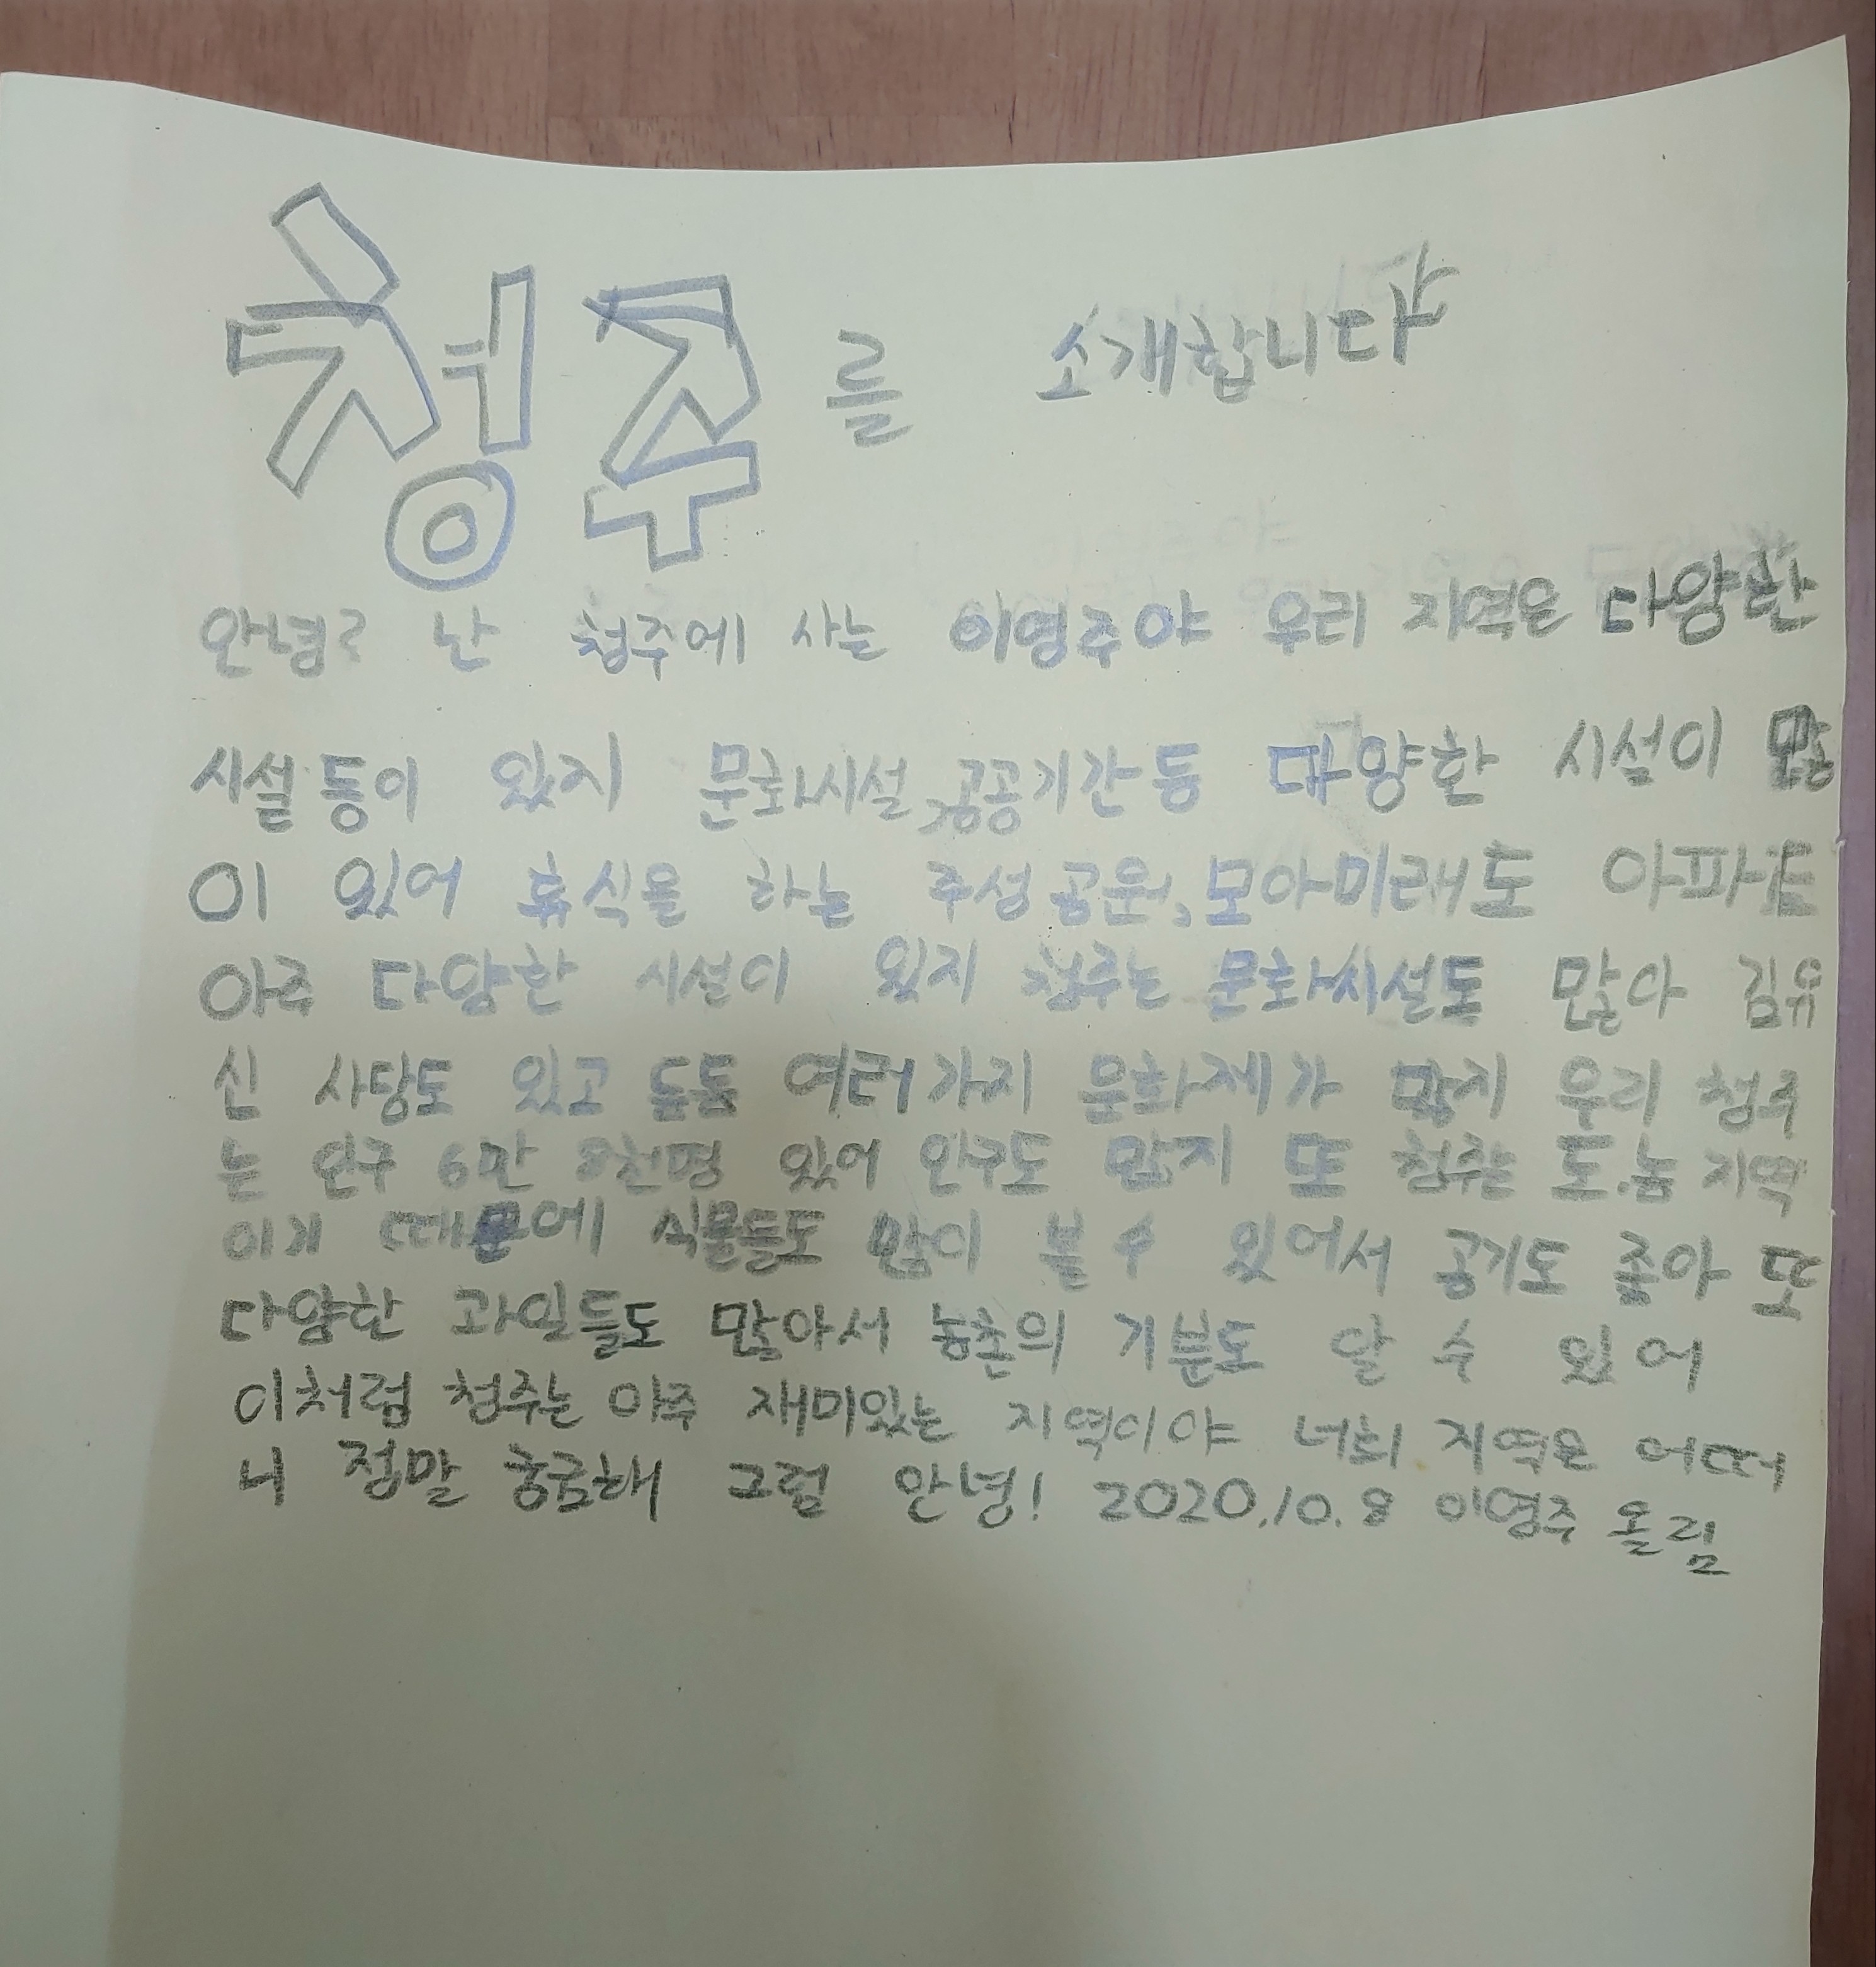 청주를 소개합니다
안녕? 난 청주에 사는 이영주야 우리 지역은 다양한
시설 등이 있지 문화시설,공공기간등 다양한 시설이 많
이 있어 휴식을 하는 주성공원,모아미래도 아파트
아주 다양한 시설이 있지 청주는 문화시설도 많아 김유
신 사당도 있고 등등 여러가지 문화제가 많지 우리 청주
는 인구 6만 8천명 있어 인구도 많지 또 청주는 도.농 지역
이기 때문에 식물들도 많이 볼 수 있어서 공기도 좋아 또
다양한 과일들도 많아서 농촌의 기분도 알 수 있어
이처럼 청주는 아주 재미있는 지역이야 너희 지역은 어떠
니 정말 궁금해 그럼 안녕! 2020.10.8 이영주 올림